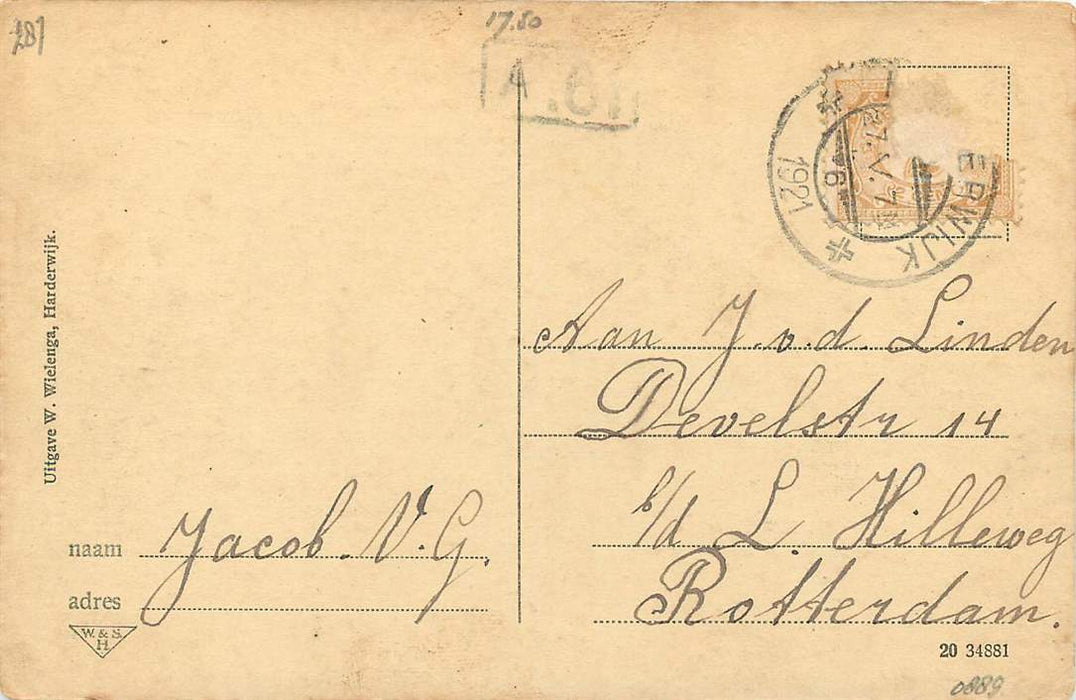 287
17.50
A.61
ERWIJK
27.V.
6
1921
Uitgave W. Wielenga, Harderwijk.
Aan J. v. d. Linden
Develstr 14
b/d L. Hilleweg
Rotterdam.
naam Jacob. V. G.
adres
W. & S.
H.
20 34881
0889